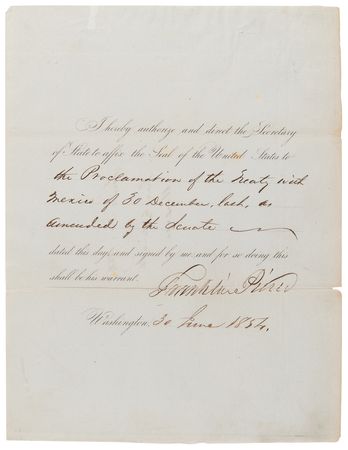 I hereby authorize and direct the Secretary
of State to affix the Seal of the United States to
the Proclamation of the Treaty with
Mexico of 30 December, last, as
amended by the Senate
dated this day, and signed by me and for so doing this
shall be his warrant.
Franklin Pierce
Washington, 30 June 1854.